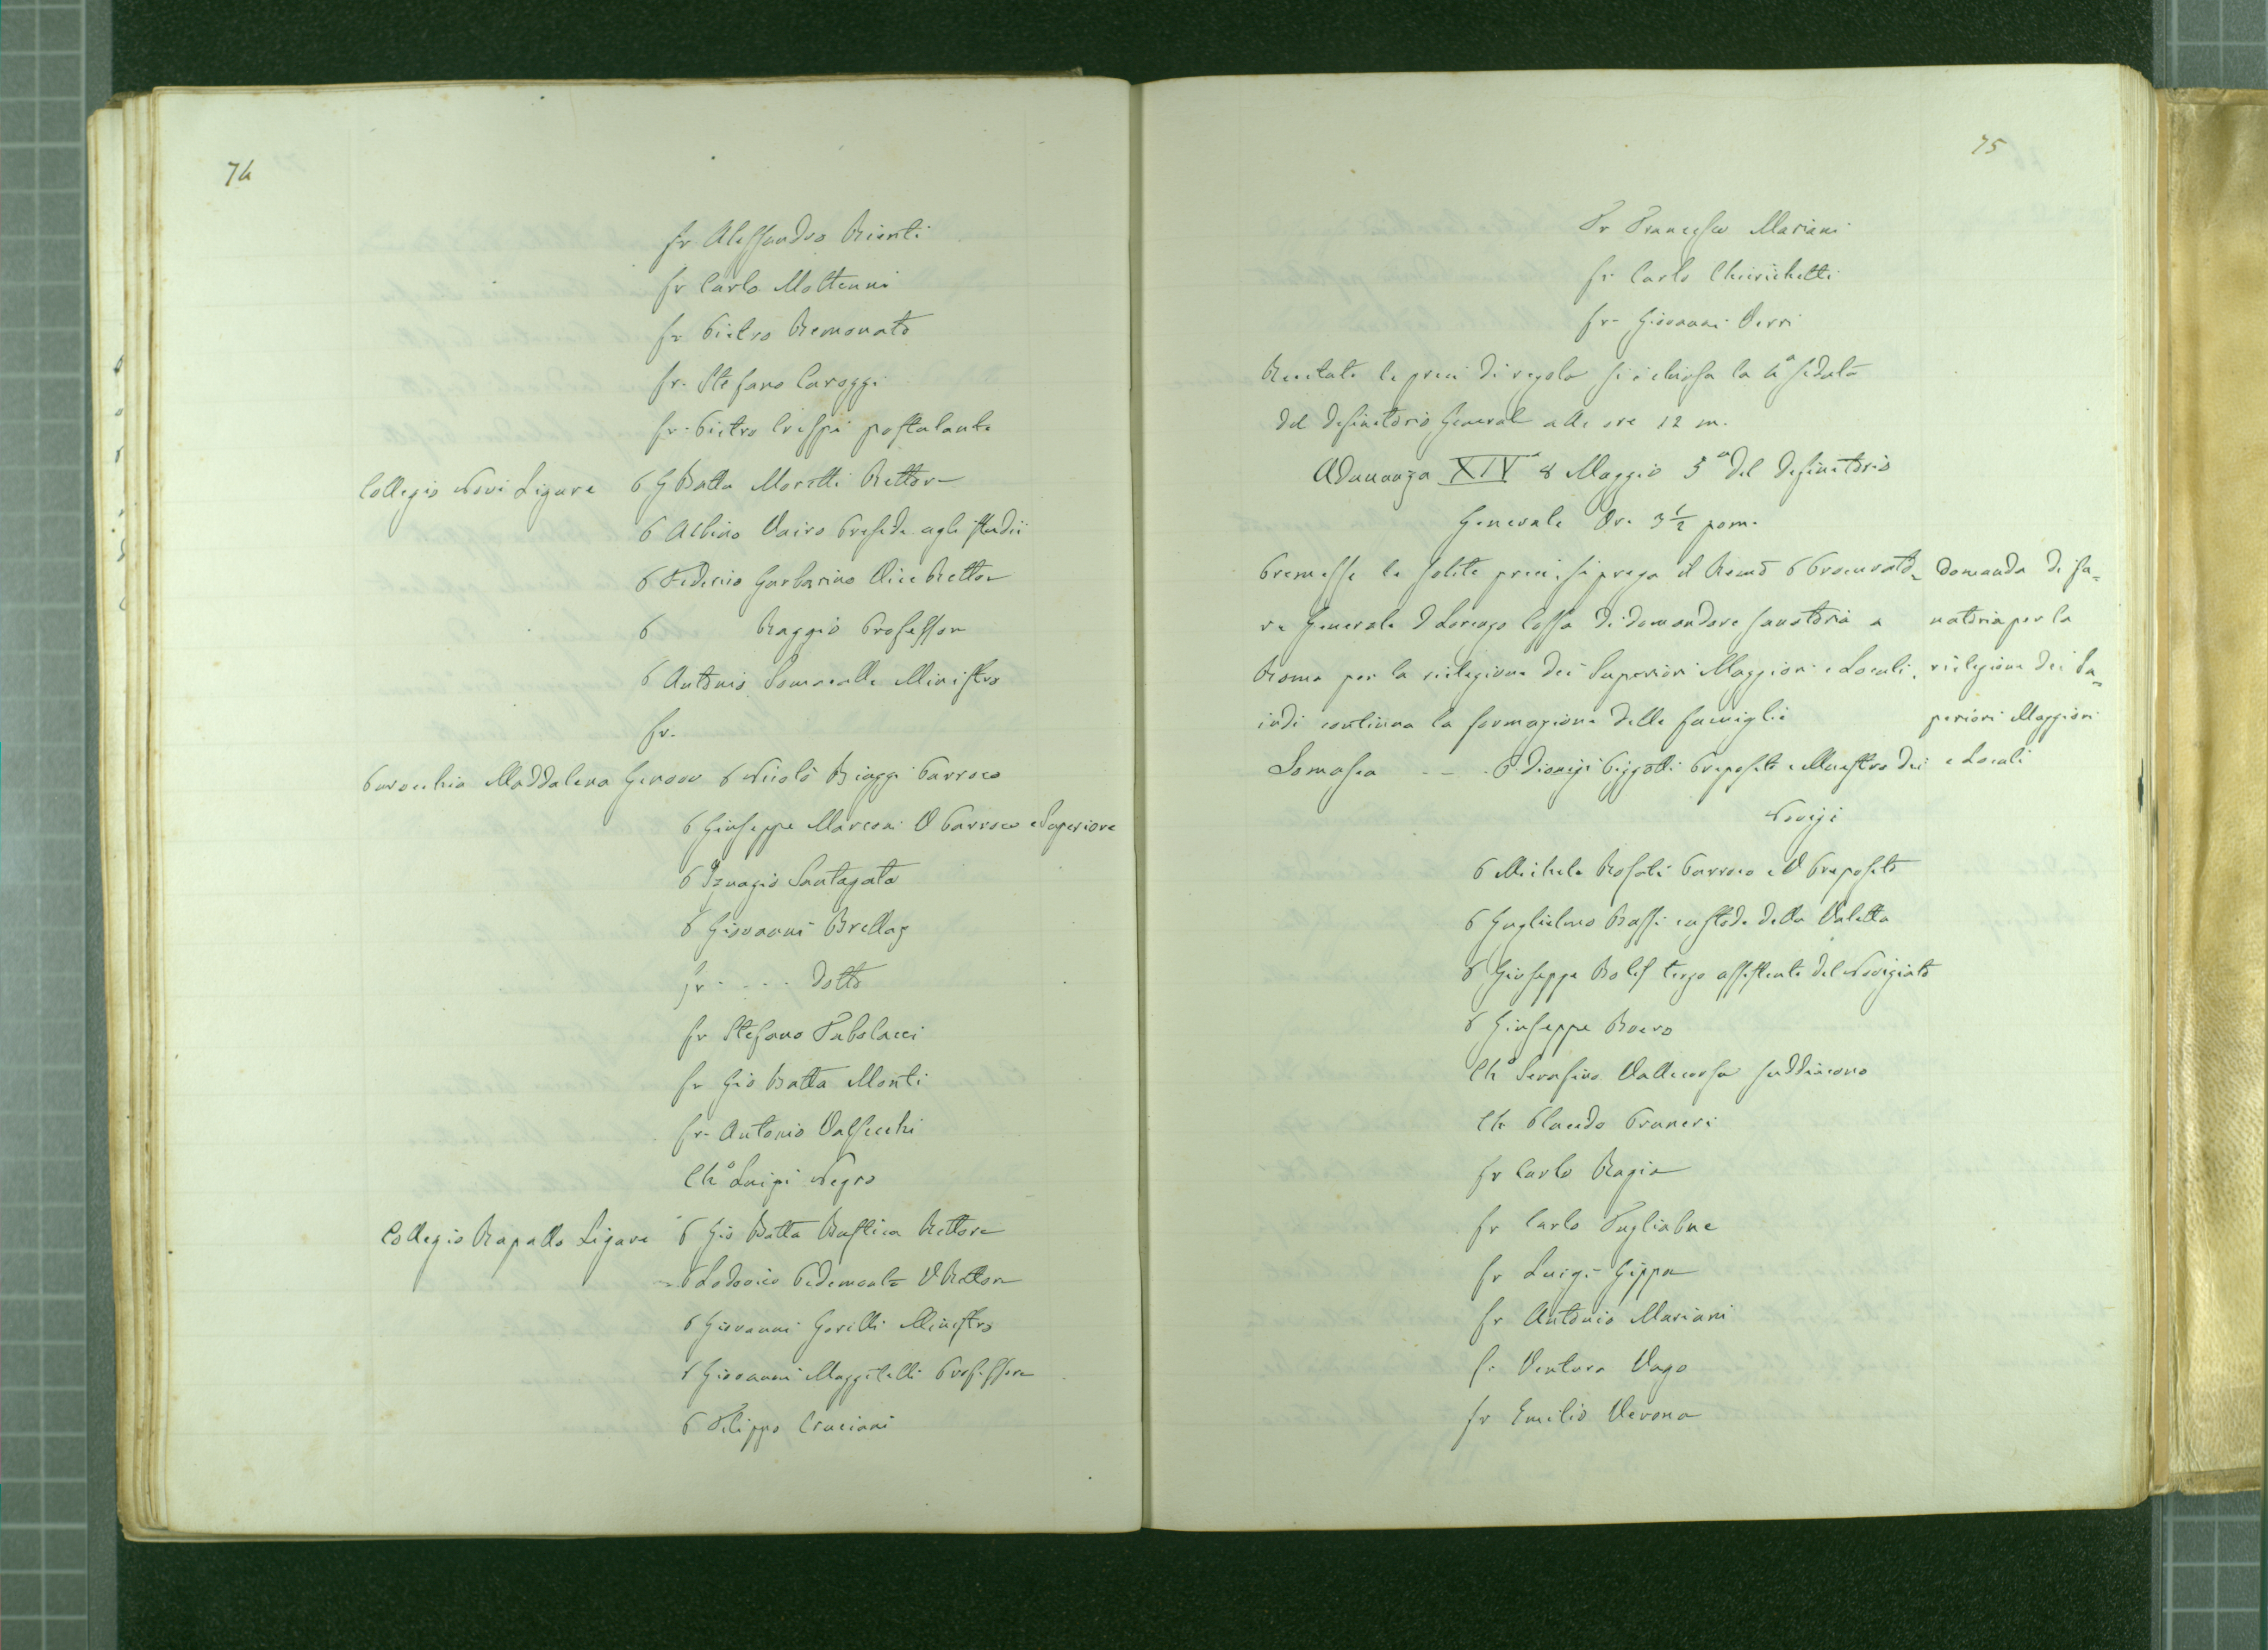 74
fr Alessandro Rienti
fr Carlo Molteuni
fr Pietro Remonato
fr. Stefano Caroggi
fr. Pietro Crespi postulante
Collegio Novi Ligure P G Batta Moretti Rettore
P Albino Vairo Preside agli studii
P Federico Garbarino Vice Rettor
P Raggio Professor
P Antonio Ministro
fr.
Parocchia Maddalena Genova P Nicolò Biaggi Parroco
P Giuseppe Marconi V Parroco e Superiore
P Ignazio Santagata
P Giovanni Brellaz
fr - - - - Dotto
fr Stefano Tubolacci
fr Gio Batta Monti
fr. Antonio Valsecchi
Ch° Luigi Negro
Collegio Rapallo Ligure P Gio Batta Rettore
P Lodovico Pedemonte V Rettore
P Giovanni Gorilli Ministro
P Giovanni Maggitelli Professore
P Filippo Cruciani
75
Fr Francesco Mariani
fr Carlo Chierichetti
fr. Giovanni Verri
Recitate le preci di regola si è chiusa la 4ª seduta
del Definitorio General alle ore 12 m.
Adunanza XIVª 8 Maggio 5ª del Definitorio
Generale Ore 3 1/2 pom.
Premesse le solite preci, si prega il Remo P Procurato=
re Generale D Lorenzo Cossa di domandare sanatoria a
Roma per la rielezione dei Superiori Maggiori e Locali.
indi continua la formazione delle famiglie
Domanda di sa=
natoria per la
rielezione dei Su=
periori Maggiori
e Locali
Somasca - - - P Dionigi Pizzotti Preposito e Maestro dei
Novizi
P Michele Rosati Parroco e V Preposito
P Guglielmo Bassi custode della Valletta
P Giuseppe terzo assistente del Noviziato
P Giuseppe Boero
Ch° Serafino Vallecorsa suddiacono
Ch Placido Pruneri
fr Carlo Ragia
fr Carlo Tagliabue
fr Luigi Gippa
fr Antonio Mariani
fr Ventura Vago
fr Emilio Verona